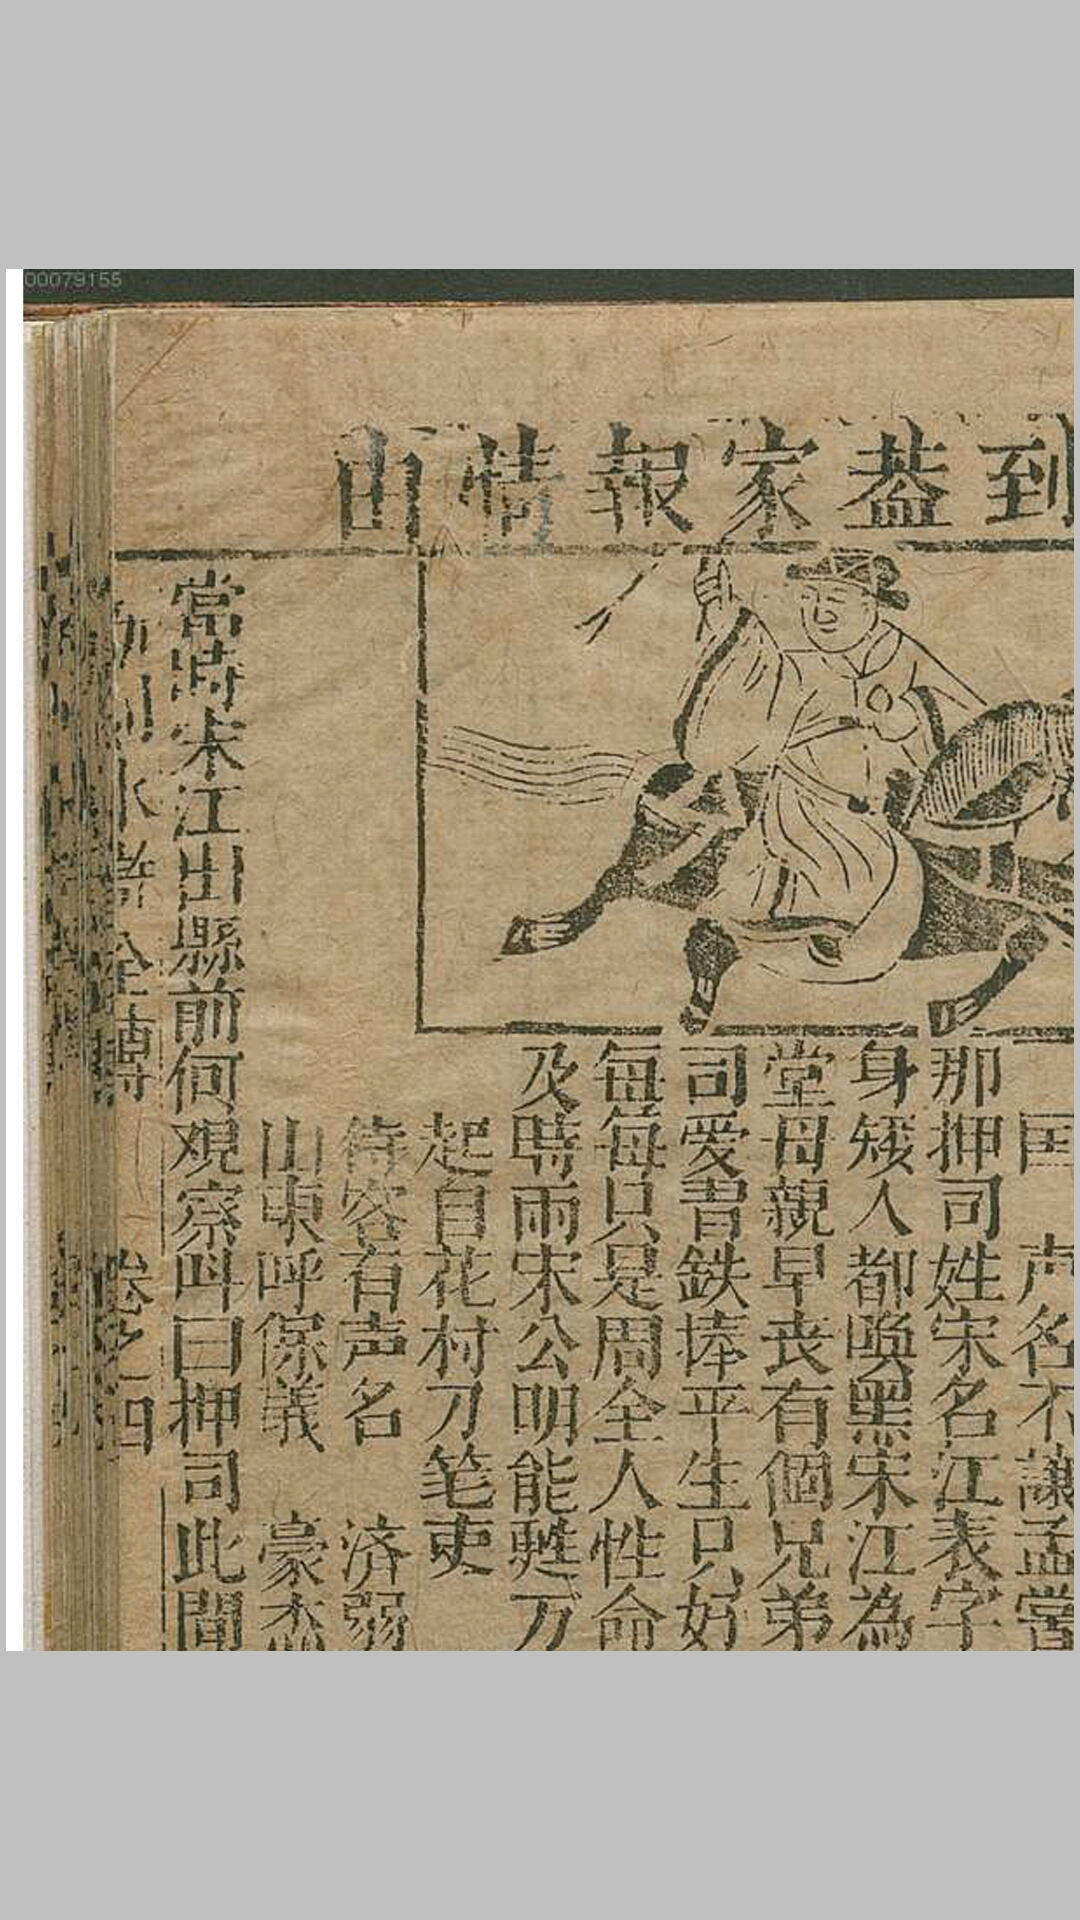 00079155
到蓋家報情由
国　声名不讓孟嘗
那押司姓宋名江表字
身矮人都喚黑宋江為
堂母親早丧有個兄弟
司愛書鉄捧平生只好
每每只是周全人性命
及時雨宋公明能甦万
起自花村刀笔吏
待客有声名　济弱
山東呼保義　豪杰
當時宋江出縣前何观察呌曰押司此間
水滸全傳　卷之四